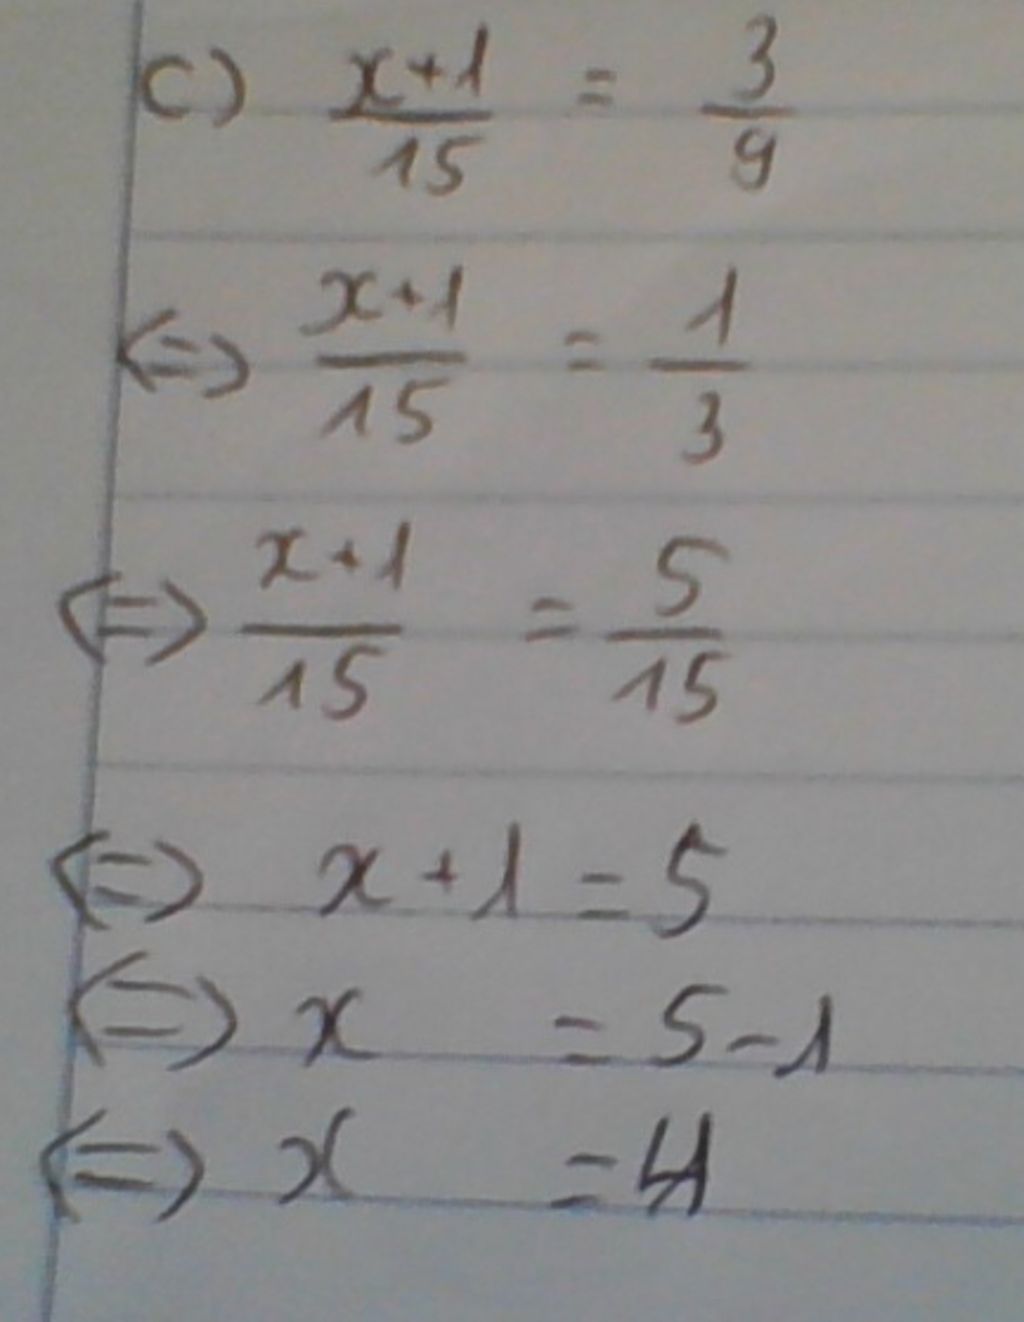 c) x+1/15 = 3/9
<=> x+1/15 = 1/3
<=> x+1/15 = 5/15
<=> x+1=5
<=> x = 5-1
<=> x = 4